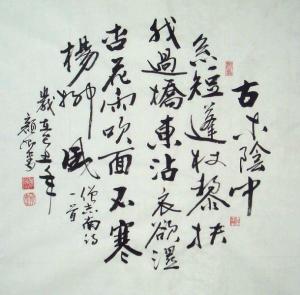 古木陰中
系短蓬杖藜扶
我過橋東沾衣欲濕
杏花雨吹面不寒
楊柳風
僧志南詩
一首
歲在乙丑年